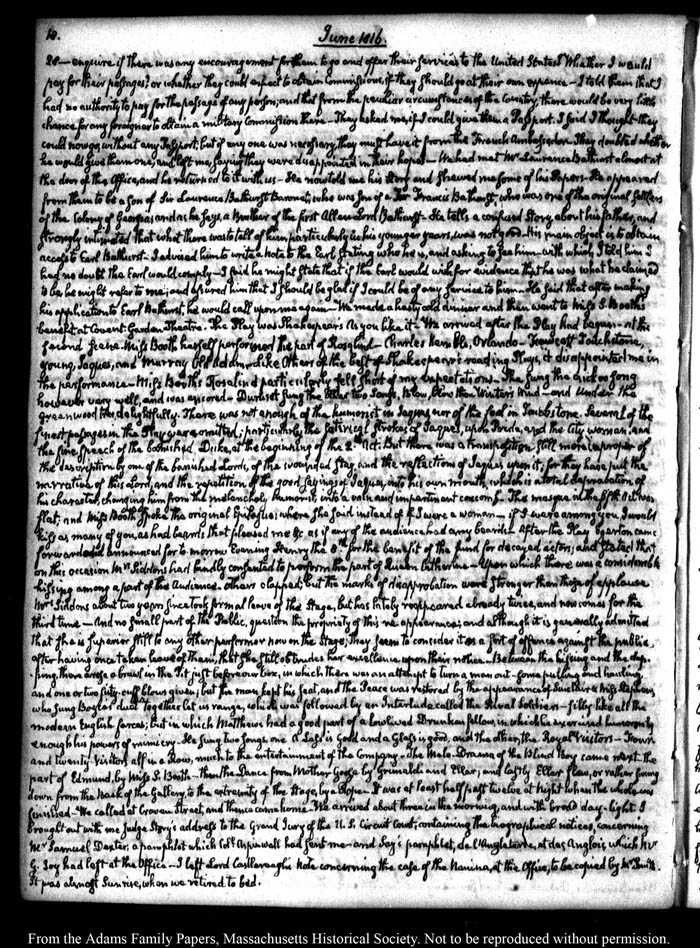 10.
June 1816.
28 — enquire if there was any encouragement for them to go and offer their services to the United States? Whether I would
pay for their passages; or whether they could expect to obtain Commissions, if they should go at their own expence — I told them that I
had no authority to pay for the passage of any person; and that from the peculiar circumstances of the Country, there would be very little
chance for any foreigner to obtain a military Commission there — They asked me, if I could give them a Passport. I said I thought they
could now go without any Passport, but if any one was necessary, they must have it from the French Ambassador. They doubted whether
he would give them one, and left me, saying they were disappointed in their hopes — We had met Mr Laurence Bathurst almost at
the door of the Office, and he returned to it with us — He now told me his Story and shewed me some of his Papers — He appeared
from them to be a son of Sir Laurence Bathurst Baronet, who was Son of a Sir Francis Bathurst, who was one of the original Settlers
of the Colony of Georgia; and as he says, a Brother of the first Allen Lord Bathurst. He tells a confused Story about his father, and
strongly intimated that what there was to tell of him particularly in his younger years, was not good. His main object is to obtain
access to Earl Bathurst. I advised him to write a Note to the Earl stating who he is, and asking to see him — with which, I told him I
had no doubt the Earl would comply — I said he might State that if the Earl would wish for evidence that he was what he claimed
to be, he might refer to me; and assured him that I should be glad if I could be of any service to him — He said that after making
his application to Earl Bathurst, he would call upon me again — We made a hasty cold dinner and then went to Miss S. Booth's
benefit at Covent-Garden Theatre. The Play was Shakespear's As you like it — We arrived after the Play had begun — at the
second Scene. Miss Booth herself performed the part of Rosalind — Charles Kemble, Orlando — Fawcett Touchstone,
Young, Jaques, and Murray Old Adam. Like others of the best of Shakespear's reading Plays, it disappointed me in
the performance — Miss Booth's Rosalind particularly fell short of my expectations — She sung the Cuckoo Song
however very well, and was encored — Duruset sung the other two Songs, Blow, blow thou Winters Wind — and Under the
greenwood tree, delightfully. There was not enough of the humorist in Jaques, nor of the fool in Touchstone. Several of the
finest passages in the Play were omitted; particularly, the satirical Strokes of Jaques, upon Pride, and the City woman, and
the fine Speech of the banished Duke, at the beginning of the 2d Act. But there was a transposition still more improper of
the description by one of the banished Lords, of the wounded Stag and the reflections of Jaques upon it; for they have put the
narrative of this Lord, and the repetition of the good sayings of Jaques, into his own mouth, which is a total depravation of
his character, changing him from the melancholy humorist, into a vain and impertinent coxcomb. The masque in the fifth Act was
flat; and Miss Booth spoke the original Epilogue; where She said instead of if I were a woman — if I were among you, I would
kiss as many of you, as had beards that pleased me &c. as if any of the audience had any beards — After the Play Egerton came
forward and announced for to-morrow Evening Henry the 8th for the benefit of the fund for decayed actors; and stated that
on this occasion Mrs Siddons had kindly consented to perform the part of Queen Catherine — Upon which there was a considerable
hissing among a part of the Audience. Others clapped; but the marks of disapprobation were stronger than those of applause
Mrs Siddons about two years since took formal leave of the Stage, but has lately reappeared already twice, and now comes for the
third time — And no small part of the Public, question the propriety of this re-appearance; and although it is generally admitted
that She is superior still to any other performer now on the Stage; they seem to consider it as a sort of offence against the public
after having once taken leave of them, that She still obtrudes her excellence upon their notice. Between the hissing and the clap-
-ping, there arose a brawl in the Pit just before our box, in which there was an attempt to turn a man out — some pulling and hauling,
and one or two fisty-cuff blows given; but the man kept his seat, and the Peace was restored by the appearance of Sinclair & Miss Stephens
who sung duet Together let us range, which was followed by an Interlude called the Rival Soldiers — silly like all the
modern English farces; but in which Matthews had a good part of a low lived Drunken fellow, in which he exercised humorously
enough his powers of mimicry — He sung two songs one A Lass is good and a Glass is good, and the other, the Royal Visitors —
and twenty Visitors all in a Row, much to the entertainment of the Company. The Melo-Drama of the Blind Boy came next the
part of Edmund, by Miss S. Booth — then the Dance from Mother Goose by Grimaldi and Ellar; and lastly Ellar flew, or rather swung
down from the back of the Gallery, to the extremity of the Stage, by a Rope. It was at least half past twelve at Night when the whole was
finished — We called at Craven Street, and thence came home. We arrived about three in the morning, and with broad day-light. I
brought out with me Judge Story's address to the Grand Jury of the U.S. Circuit Court, containing the biographical notices, concerning
Mr Samuel Dexter, a pamphlet which Coll Aspinwall had sent me — and Say's pamphlet, de l'Angleterre, et des Anglois, which Mr
G. Joy had left at the Office — I left Lord Castlereagh's Note concerning the case of the Nanina, at the Office, to be copied by Mr Smith.
It was almost Sunrise, when we retired to bed.
From the Adams Family Papers, Massachusetts Historical Society. Not to be reproduced without permission.